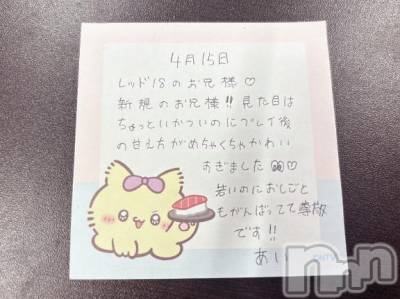 4月15日
レッド18のお兄様♡
新規のお兄様!!見た目は
ちょっといかついのにプレイ後
の甘え方がめちゃくちゃかわい
すぎました♡
若いのにおしごと
もがんばってて尊敬
です!!
あい
©NTV